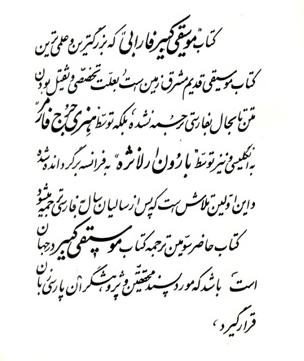 کتاب "موسیقی کبیر فارابی" که بزرگترین و علمی ترین
کتاب موسیقی قدیم مشرق زمین است بعلت تخصصی و ثقیل بودن
متن تا بحال بفارسی ترجمه نشده، بلکه توسط "هنری جورج فارمر"
به انگلیسی و نیز توسط "بارون ارلانژه" به فرانسه برگردانده شد
و این اولین تلاش است که پس از سالیان سال به فارسی ترجمه میشود
کتاب حاضر سومین ترجمه کتاب موسیقی کبیر در جهان
است باشد که مورد پسند محققین و پژوهشگران پارسی زبان
قرار گیرد،